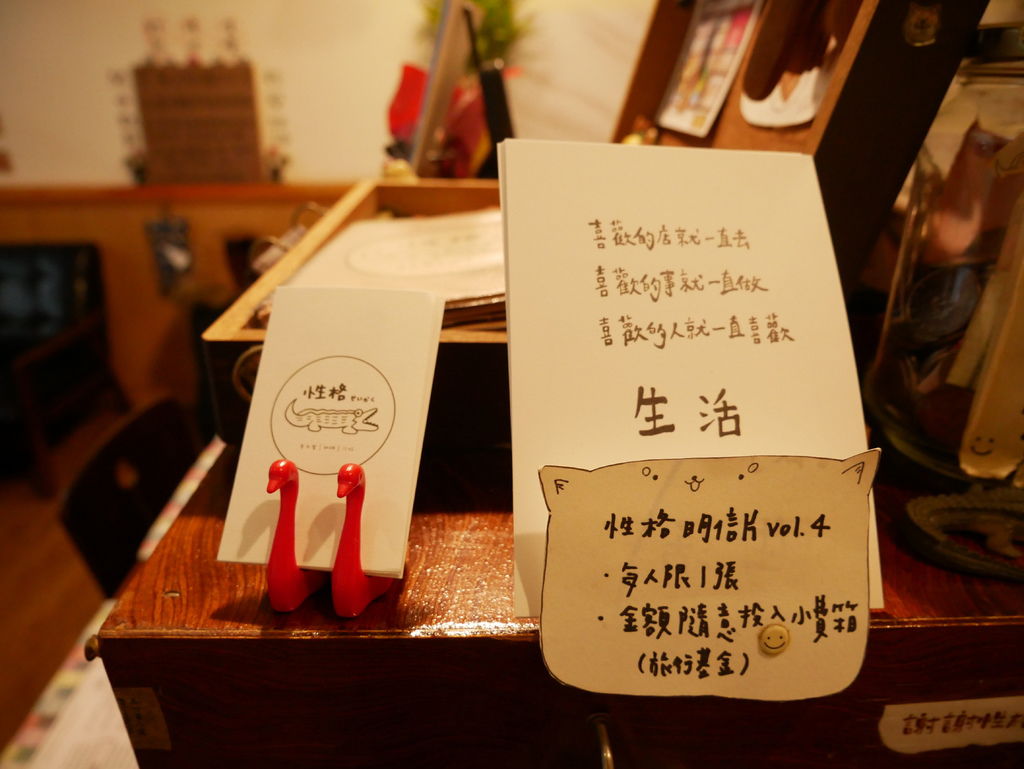 喜歡的店就一直去
喜歡的事就一直做
喜歡的人就一直喜歡
生活
性格
せいかく
性格明信片 vol.4
・每人限1張
・金額隨意投入小費箱
(旅行基金)
謝謝